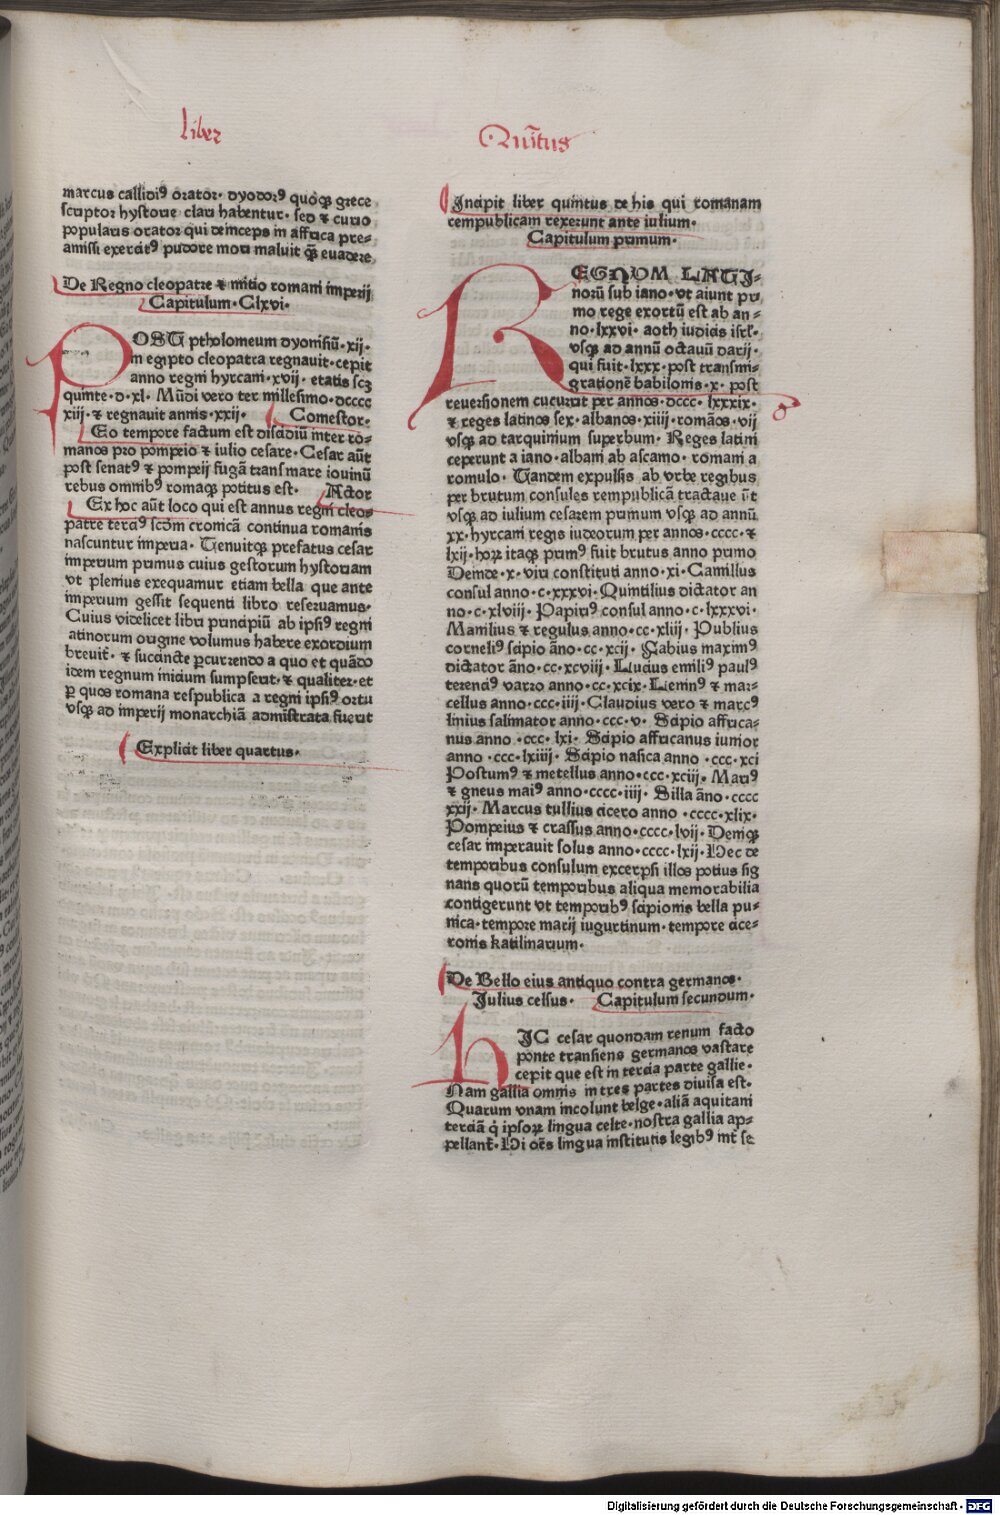 Liber
Quītus
marcus callidiꝰ orator· dyodorꝰ quoqꝫ grece
scriptor hystorie clari habentur· sed ⁊ curio
popularis orator qui deinceps in affrica pre-
amissi exercitꝰ pudore mori maluit qꝫ̄ euadere
De Regno cleopatre ⁊ initio romani imperij
Capitulum· Clxvi·
POST ptholomeum dyonisiū· xij·
in egipto cleopatra regnauit· cepit
anno regni hyrcani· xvij· etatis scꝫ
quinte· d· xl· Mūdi vero ter millesimo· dcccc
xiij· ⁊ regnauit annis· xxij· Comestor·
Eo tempore factum est discidiū inter ro-
manos pro pompeio ⁊ iulio cesare· Cesar aūt
post senatꝰ ⁊ pompeij fugā trans mare iouinū
rebus omnibꝰ romaqꝫ potitus est· Actor
Ex hoc aūt loco qui est annus regni cleo-
patre terciꝰ scd̄m cronicā continua romanis
nascuntur imperia· Genuitqꝫ prefatus cesar
imperium primus cuius gestorum hystoriam
vt plenius exequamur etiam bella que ante
imperium gessit sequenti libro reseruamus·
Cuius videlicet libri principiū ab ipsiꝰ regni
atinorum origine volumus habere exordium
breuit̄· ⁊ succincte ꝑcurrendo a quo et quādo
idem regnum inicium sumpserit· ⁊ qualiter· et
ꝑ quos romana respublica a regni ipsiꝰ ortu
vsqꝫ ad imperij monarchiā admīstrata fuerit
Explicit liber quartus·
Incipit liber quintus de his qui romanam
rempublicam rexerunt ante iulium·
Capitulum primum·
REGNUM LATI-
norū sub iano· vt aiunt pri
mo rege exortū est ab an-
no· lxxvi· aoth iudicis isrl̄·
vsqꝫ ad annū octauū darij·
qui fuit· lxxx· post transmi-
grationē babilonis· x· post
reuersionem cucurrit per annos· dccc· lxxxix·
⁊ reges latinos sex· albanos· xiiij· romāos· vij
vsqꝫ ad tarquinium superbum· Reges latini
ceperunt a iano· albani ab ascanio· romani a
romulo· Tandem expulsis ab vrbe regibus
per brutum consules rempublicā tractaue rūt
vsqꝫ ad iulium cesarem primum vsqꝫ ad annū
xx· hyrcani regis iudeorum per annos· cccc· ⁊
lxij· horꝝ itaqꝫ primꝰ fuit brutus anno primo
Deinde· x· viri constituti anno· xi· Camillus
consul anno· c· xxxvi· Quintilius dictator an
no· c· xlviij· Papiriꝰ consul anno· c· lxxxvi·
Manilius ⁊ regulus anno· cc· xliij· Publius
corneliꝰ scipio āno· cc· xcij· Fabius maximꝰ
dictator āno· cc· xcviij· Lucius emiliꝰ paulꝰ
terenciꝰ varro anno· cc· xcix· Leuinꝰ ⁊ mar-
cellus anno· ccc· iiij· Claudius vero ⁊ marcꝰ
linius salinator anno· ccc· v· Scipio affrica-
nus anno · ccc· lxi· Scipio affricanus iunior
anno · ccc· lxiiij· Scipio nasica anno · ccc· xci
Postumꝰ ⁊ metellus anno· ccc· xciij· Mariꝰ
⁊ gneus maiꝰ anno· cccc· iiij· Silla āno· cccc
xxij· Marcus tullius cicero anno · cccc· xlix·
Pompeius ⁊ crassus anno· cccc· lvij· Deniqꝫ
cesar imperauit solus anno· cccc· lxij· Hec de
temporibus consulum excerpsi illos potius sig
nans quorū temporibus aliqua memorabilia
contigerunt vt temporibꝰ scipionis bella pu-
nica· tempore marij iugurtinum· tempore cice-
ronis katilinarium·
De Bello eius antiquo contra germanos·
Julius celsus· Capitulum secundum·
HIC cesar quondam renum facto
ponte transiens germanos vastare
cepit que est in tercia parte gallie·
Nam gallia omnis in tres partes diuisa est·
Quarum vnam incolunt belge· aliā aquitani
terciā q̇ ipsorꝝ lingua celte· nostra gallia ap-
pellant̄· Hi oēs lingua institutis legibꝰ int̄ se
Digitalisierung gefördert durch die Deutsche Forschungsgemeinschaft · DFG